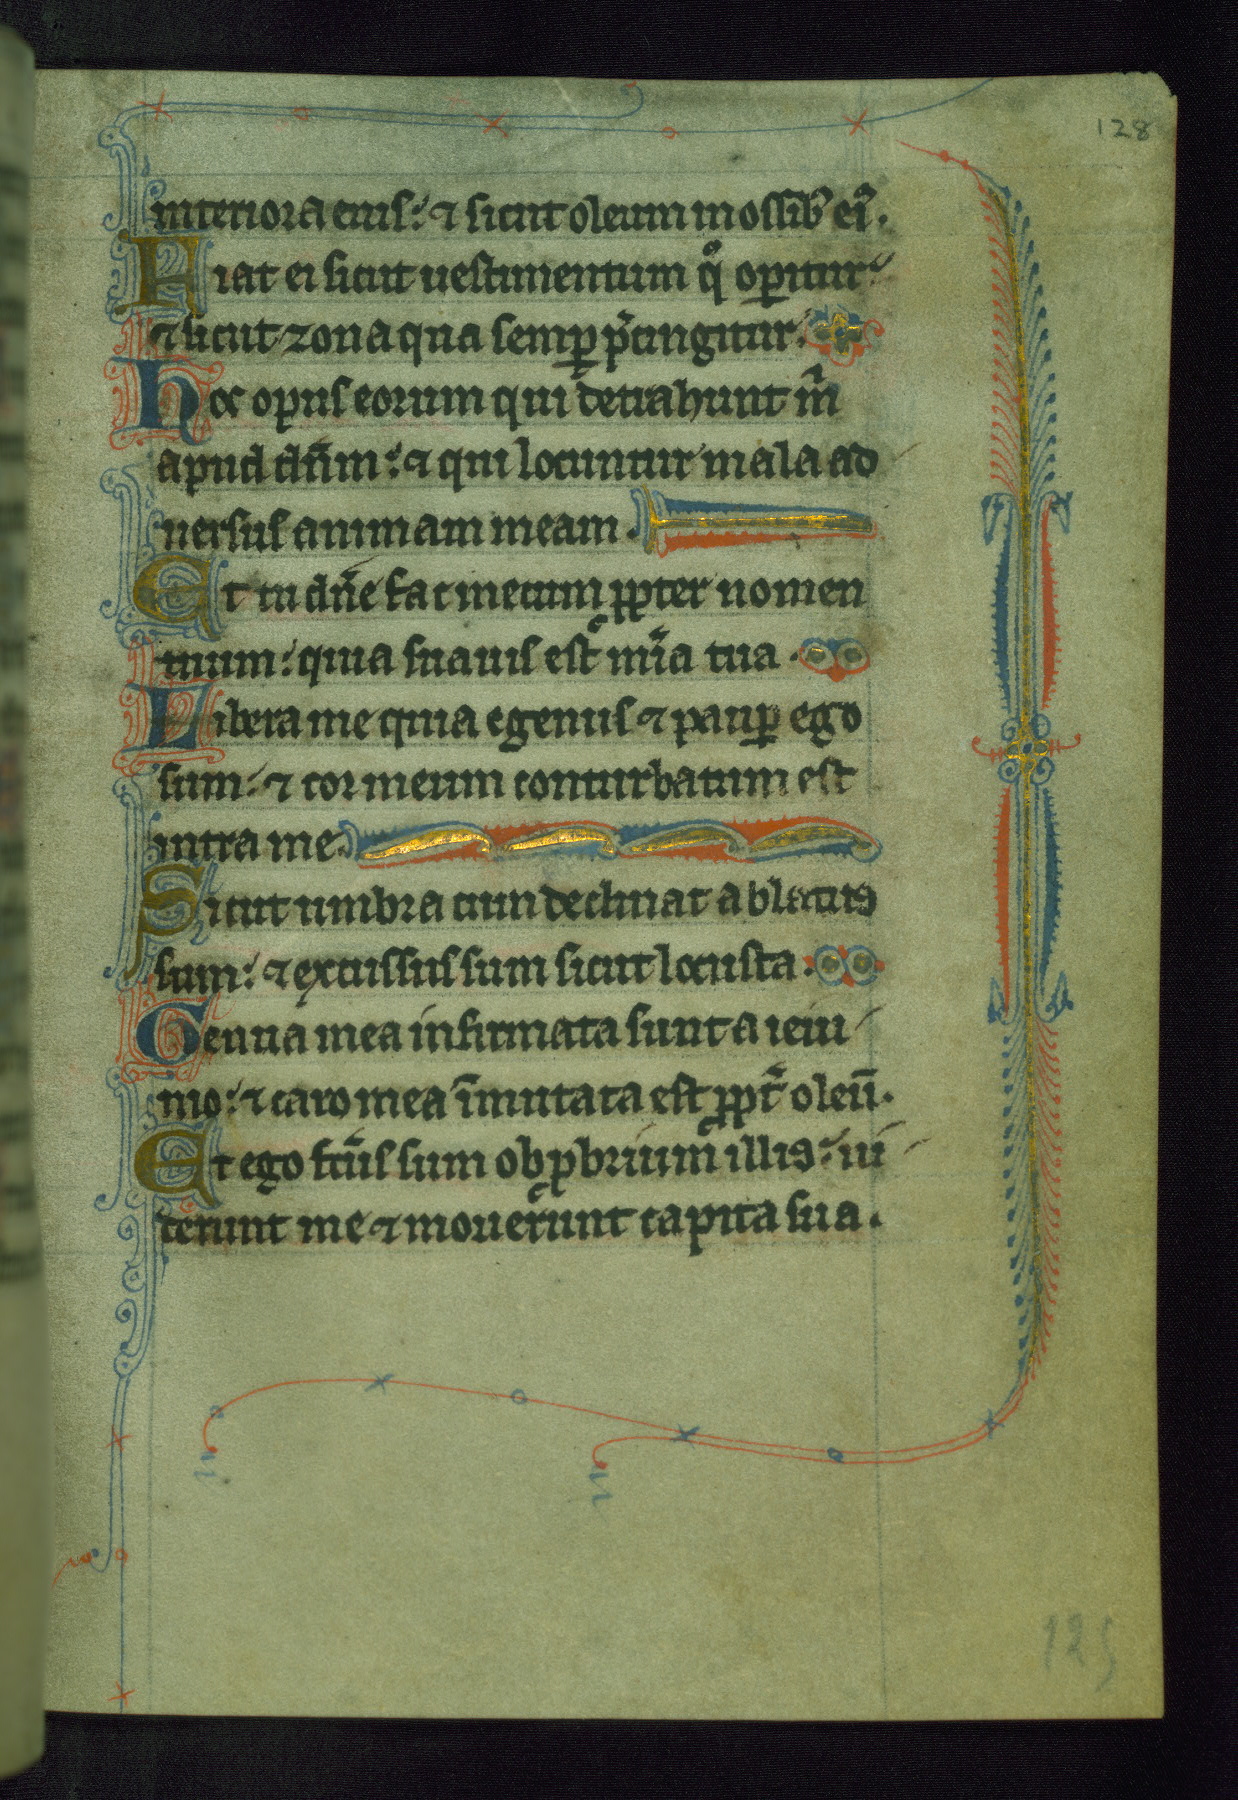 128
interiora eius: ⁊ sicut oleum in ossib' ei᷒.
Fiat ei sicut uestimentum qͦ op̲itur:
⁊ sicut zona qua semp̲ p̄cingitur.
Hoc opus eorum qui detrahunt m̄
apud dn̄m: ⁊ qui locuntur mala ad
uersus animam meam.
Et tu dn̄e fac mecum ꝓpter nomen
tuum: quia suauis est mīa tua.
Libera me quia egenus ⁊ paup̲ ego
sum: ⁊ cor meum conturbatum est
intra me.
Sicut umbra cum declinat ablatus
sum: ⁊ excussus sum sicut locusta.
Genua mea infirmata sunt a ieiu
nio: ⁊ caro mea īmutata est ꝓpt̄ oleū.
Et ego fc̄us sum obꝓbrium illis: ui
derunt me ⁊ mouerunt capita sua.
125